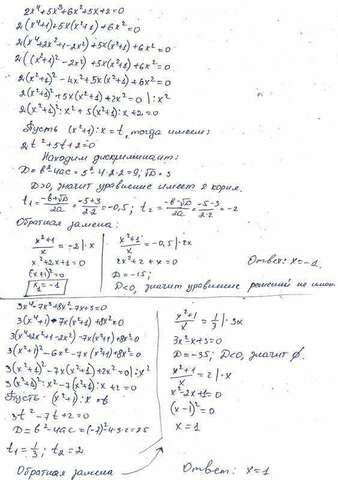 2x⁴+5x³+6x²+5x+2=0
2(x⁴+1)+5x(x²+1)+6x²=0
2(x⁴+2x²+1-2x²)+5x(x²+1)+6x²=0
2((x²+1)²-2x²)+5x(x²+1)+6x²=0
2(x²+1)²-4x²+5x(x²+1)+6x²=0
2(x²+1)²+5x(x²+1)+2x²=0 |:x²
2(x²+1)²:x²+5(x²+1):x+2=0
Пусть (x²+1):x=t, тогда имеем:
2t²+5t+2=0
Находим дискриминант:
D=b²-4ac=5²-4·2·2=9; √D=3
D>0, значит уравнение имеет 2 корня.
t₁=(-b+√D)/2a=(-5+3)/2·2=-0,5; t₂=(-b-√D)/2a=(-5-3)/2·2=-2
Обратная замена:
(x²+1)/x=-2|·x
x²+2x+1=0
(x+1)²=0
x₁=-1
(x²+1)/x=-0,5|·2x
2x²+2+x=0
D=-15;
D<0, значит уравнение решений не имеет.
Ответ: x=-1.
3x⁴-7x³+8x²-7x+3=0
3(x⁴+1)-7x(x²+1)+8x²=0
3(x⁴+2x²+1-2x²)-7x(x²+1)+8x²=0
3(x²+1)²-6x²-7x(x²+1)+8x²=0
3(x²+1)²-7x(x²+1)+2x²=0|:x²
3(x²+1)²:x²-7(x²+1):x+2=0
Пусть: (x²+1):x=t
3t²-7t+2=0
D=b²-4ac=(-7)²-4·3·2=25
t₁=1/3; t₂=2
Обратная замена
(x²+1)/x=1/3|·3x
3x²-x+3=0
D=-35; D<0, значит ∅.
(x²+1)/x=2|·x
x²-2x+1=0
(x-1)²=0
x=1
Ответ: x=1